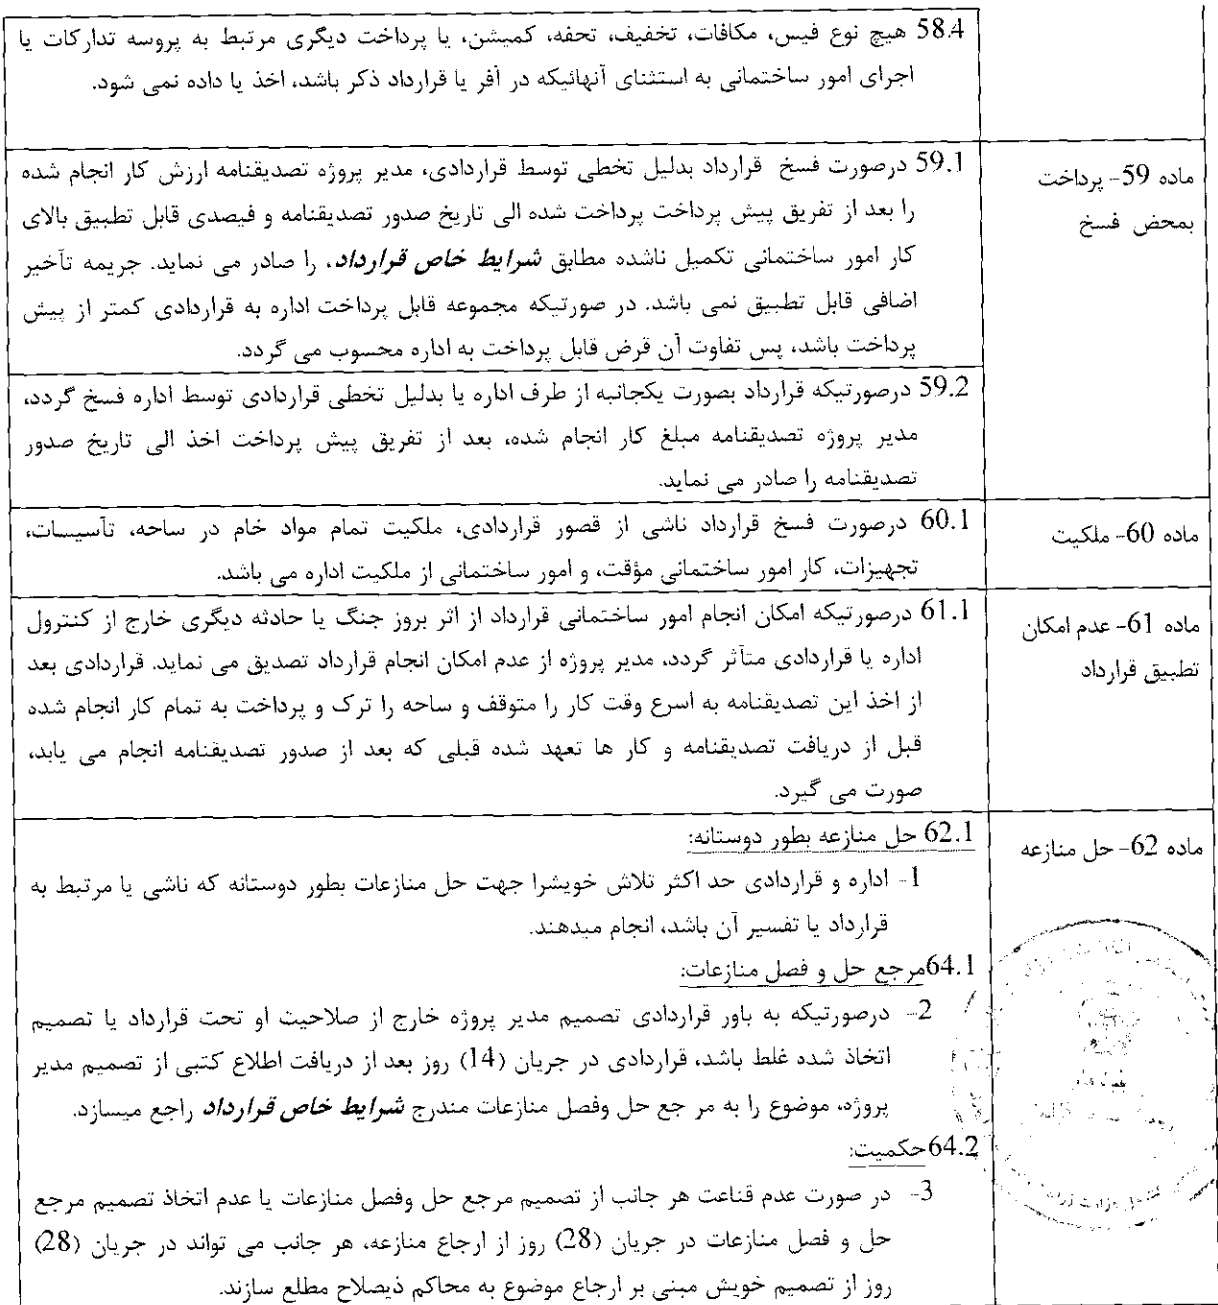 58.4 هیچ نوع فیس، مکافات، تخفیف، تحفه، کمیشن، یا پرداخت دیگری مرتبط به پروسه تدارکات یا
اجرای امور ساختمانی به استثنای آنهائیکه در آفر یا قرارداد ذکر باشد، اخذ یا داده نمی شود.
ماده 59- پرداخت
بمحض فسخ
59.1 درصورت فسخ قرارداد بدلیل تخطی توسط قراردادی، مدیر پروژه تصدیقنامه ارزش کار انجام شده
را بعد از تفریق پیش پرداخت پرداخت شده الی تاریخ صدور تصدیقنامه و فیصدی قابل تطبیق بالای
کار امور ساختمانی تکمیل ناشده مطابق شرایط خاص قرارداد، را صادر می نماید. جریمه تآخیر
اضافی قابل تطبیق نمی باشد. در صورتیکه مجموعه قابل پرداخت اداره به قراردادی کمتر از پیش
پرداخت باشد، پس تفاوت آن قرض قابل پرداخت به اداره محسوب می گردد.
59.2 درصورتیکه قرارداد بصورت یکجانبه از طرف اداره یا بدلیل تخطی قراردادی توسط اداره فسخ گردد،
مدیر پروژه تصدیقنامه مبلغ کار انجام شده، بعد از تفریق پیش پرداخت اخذ الی تاریخ صدور
تصدیقنامه را صادر می نماید.
ماده 60- ملکیت
60.1 درصورت فسخ قرارداد ناشی از قصور قراردادی، ملکیت تمام مواد خام در ساحه، تآسیسات،
تجهیزات، کار امور ساختمانی مؤقت، و امور ساختمانی از ملکیت اداره می باشد.
ماده 61- عدم امکان
تطبیق قرارداد
61.1 درصورتیکه امکان انجام امور ساختمانی قرارداد از اثر بروز جنگ یا حادثه دیگری خارج از کنترول
اداره یا قراردادی متآثر گردد، مدیر پروژه از عدم امکان انجام قرارداد تصدیق می نماید. قراردادی بعد
از اخذ این تصدیقنامه به اسرع وقت کار را متوقف و ساحه را ترک و پرداخت به تمام کار انجام شده
قبل از دریافت تصدیقنامه و کار ها تعهد شده قبلی که بعد از صدور تصدیقنامه انجام می یابد،
صورت می گیرد.
ماده 62- حل منازعه
62.1 حل منازعه بطور دوستانه:
1- اداره و قراردادی حد اکثر تلاش خویشرا جهت حل منازعات بطور دوستانه که ناشی یا مرتبط به
قرارداد یا تفسیر آن باشد، انجام میدهند.
64.1مرجع حل و فصل منازعات:
2- درصورتیکه به باور قراردادی تصمیم مدیر پروژه خارج از صلاحیت او تحت قرارداد یا تصمیم
اتخاذ شده غلط باشد، قراردادی در جریان (14) روز بعد از دریافت اطلاع کتبی از تصمیم مدیر
پروژه، موضوع را به مر جع حل وفصل منازعات مندرج شرایط خاص قرارداد راجع میسازد.
64.2حکمیت:
3- در صورت عدم قناعت هر جانب از تصمیم مرجع حل وفصل منازعات یا عدم اتخاذ تصمیم مرجع
حل و فصل منازعات در جریان (28) روز از ارجاع منازعه، هر جانب می تواند در جریان (28)
روز از تصمیم خویش مبنی بر ارجاع موضوع به محاکم ذیصلاح مطلع سازند.